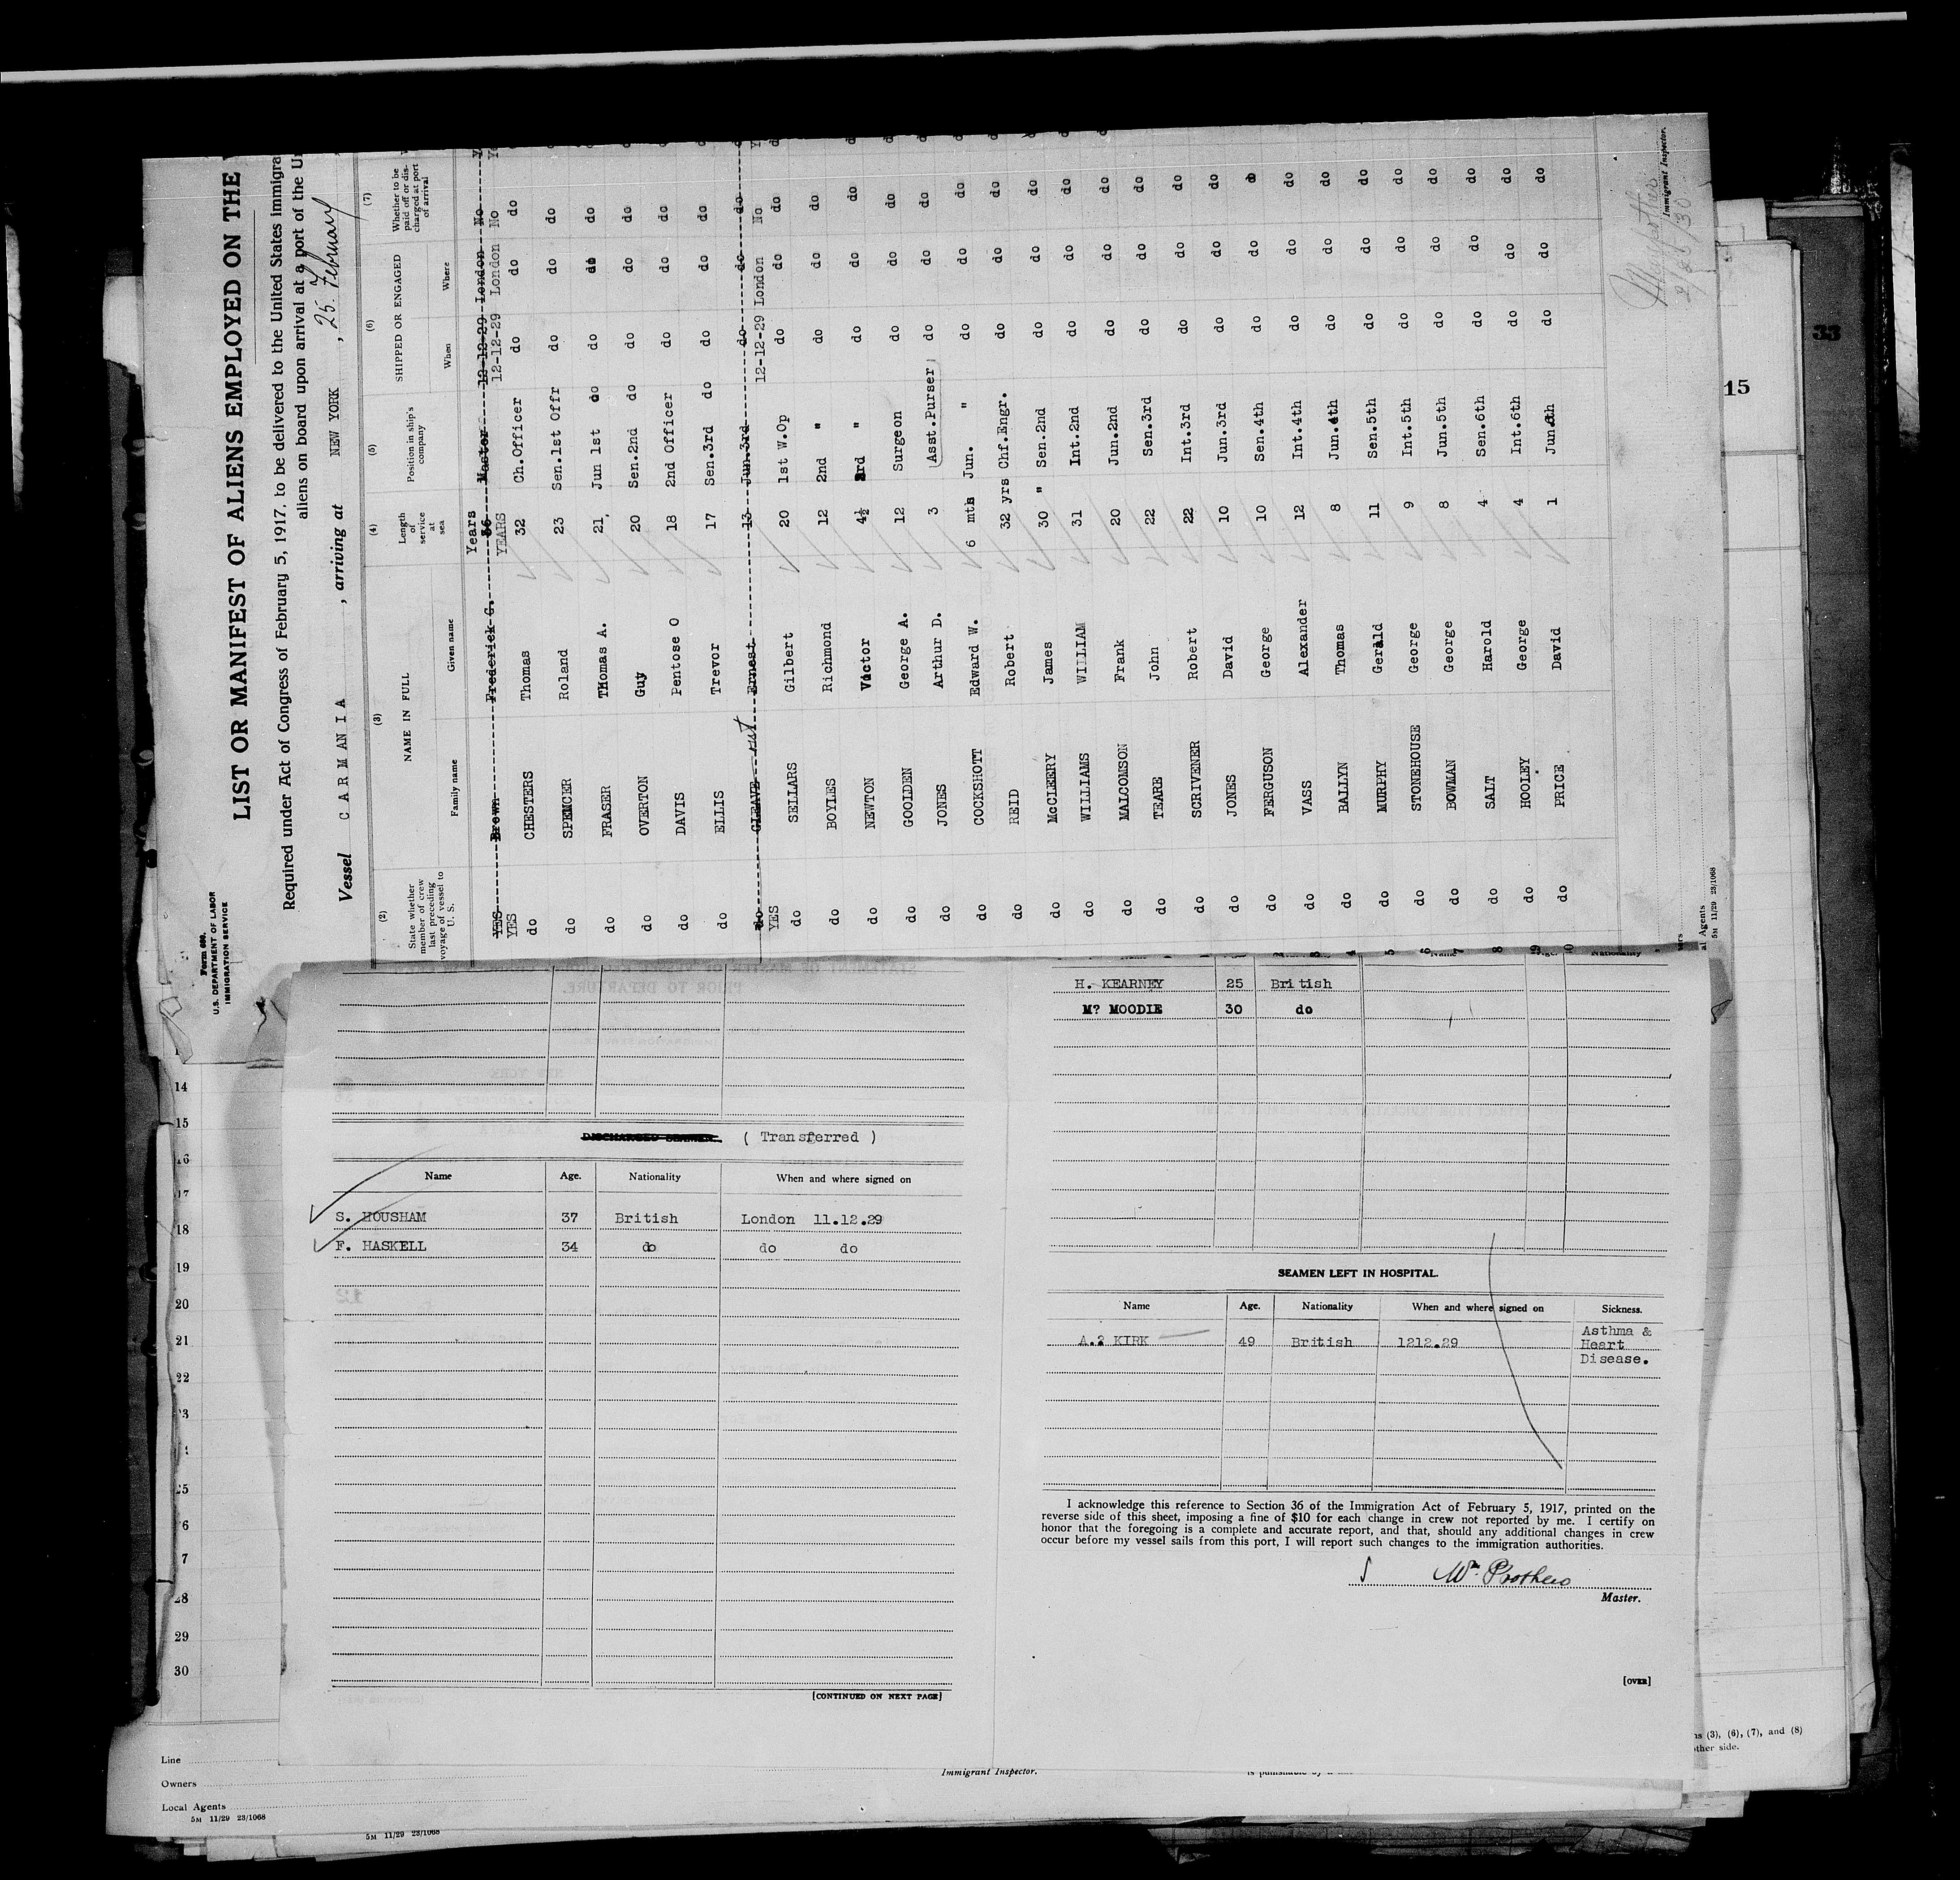 Form 680.
U.S. DEPARTMENT OF LABOR
IMMIGRATION SERVICE
LIST OR MANIFEST OF ALIENS EMPLOYED ON THE
Required under Act of Congress of February 5, 1917, to be delivered to the United States immigra
aliens on board upon arrival at a port of the Un
Vessel CARMANIA , arriving at NEW YORK , 25 February
(2) (3) (4) (5) (6) (7)
State whether member of crew last preceding voyage of vessel to U. S.
NAME IN FULL
Family name Given name
Length of service at sea
Position in ship's company
SHIPPED OR ENGAGED
When Where
Whether to be paid off or discharged at port of arrival
Years
YES Brown Frederick G. 36 Master 12-12-29 London No
YES YEARS 12-12-29 London No
do CHESTERS Thomas 32 Ch.Officer do do do
do SPENCER Roland 23 Sen.1st Offr do do do
do FRASER Thomas A. 21, Jun 1st do do do do
do OVERTON Guy 20 Sen.2nd do do do do
do DAVIS Pentose O 18 2nd Officer do do do
do ELLIS Trevor 17 Sen.3rd do do do do
do CLEAVE Ernest 13 Jun.3rd do do do
YES 12-12-29 London No
do SELLARS Gilbert 20 1st W.Op do do do
do BOYLES Richmond 12 2nd " do do do
do NEWTON Victor 4½ 3rd " do do do
do GOOLDEN George A. 12 Surgeon do do do
do JONES Arthur D. 3 Asst.Purser do do do
do COCKSHOTT Edward W. 6 mths Jun. " do do do
do REID Robert 32 yrs Chf.Engr. do do do
do McCLEERY James 30 " Sen.2nd do do do
do WILLIAMS WILLIAM 31 Int.2nd do do do
do MALCOMSON Frank 20 Jun.2nd do do do
do TEARE John 22 Sen.3rd do do do
do SCRIVENER Robert 22 Int.3rd do do do
do JONES David 10 Jun.3rd do do do
do FERGUSON George 10 Sen.4th do do do
do VASS Alexander 12 Int.4th do do do
do BALLYN Thomas 8 Jun.4th do do do
do MURPHY Gerald 11 Sen.5th do do do
do STONEHOUSE George 9 Int.5th do do do
do BOWMAN George 8 Jun.5th do do do
do SALT Harold 4 Sen.6th do do do
do HOOLEY George 4 Int.6th do do do
do PRICE David 1 Jun.6th do do do
Immigrant Inspector.
al Agents
5M 11/29 23/1068
33
15
DISCHARGED SEAMEN. ( Transferred )
Name Age. Nationality When and where signed on
S. HOUSHAM 37 British London 11.12.29
F. HASKELL 34 do do do
[CONTINUED ON NEXT PAGE]
H. KEARNEY 25 British
M? MOODIE 30 do
SEAMEN LEFT IN HOSPITAL.
Name Age. Nationality When and where signed on Sickness.
A.? KIRK 49 British 1212.29 Asthma &
Heart
Disease.
I acknowledge this reference to Section 36 of the Immigration Act of February 5, 1917, printed on the
reverse side of this sheet, imposing a fine of $10 for each change in crew not reported by me. I certify on
honor that the foregoing is a complete and accurate report, and that, should any additional changes in crew
occur before my vessel sails from this port, I will report such changes to the immigration authorities.
Wm Prothero
Master.
[OVER]
14
15
16
17
18
19
20
21
22
29
30
Line
Owners
Local Agents
5M 11/29 23/1068
5M 11/29 23/1068
Immigrant Inspector.
is punishable by a
ns (3), (6), (7), and (8)
other side.